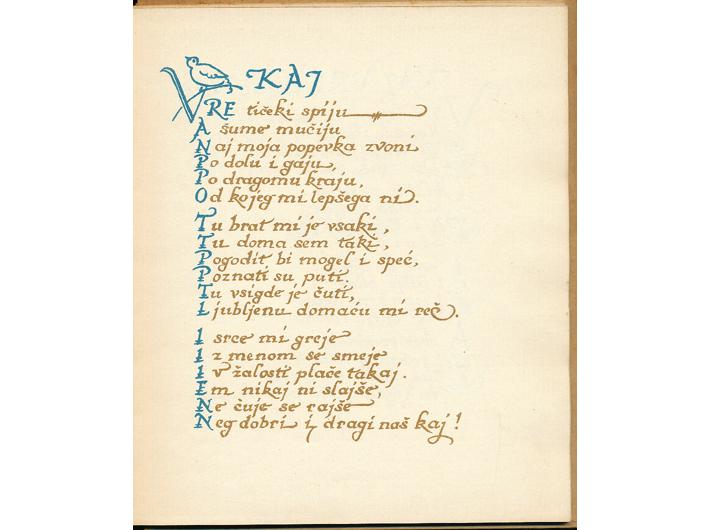 KAJ
VRE tičeki spiju
A šume mučiju
Naj moja popevka zvoni
Po dolu i gaju,
Po dragomu kraju,
Od kojeg mi lepšega ni.
Tu brat mi je vsaki,
Tu doma sem taki,
Pogodit bi mogel i speć,
Poznati su puti.
Tu vsigde je čuti,
Ljubljenu domaću mi reč.
I srce mi greje
I z menom se smeje
I v žalosti plače takaj.
Em nikaj ni slajše,
Ne čuje se rajše
Neg dobri i dragi naš kaj!